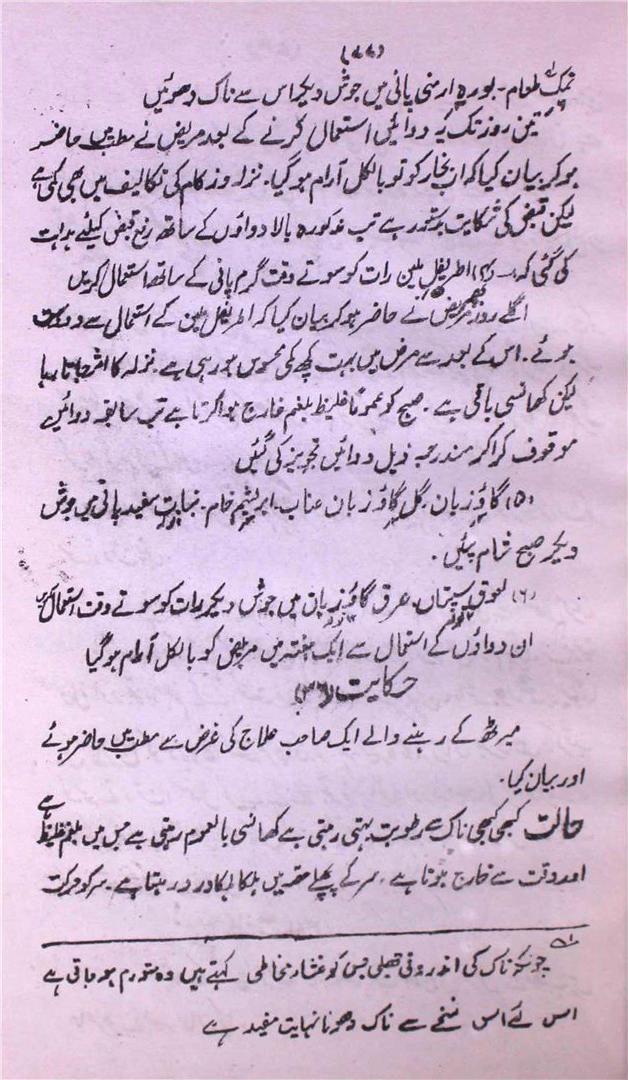 (۷۷)
نمک طعام۔ بورہ ارمنی پانی میں جوش دیکر اس سے ناک دھوئیں
تین روز تک یہ دوائیں استعمال کرنے کے بعد مریض نے مطب میں حاضر
ہو کر بیان کیا کہ اب بخار کو تو بالکل آرام ہو گیا۔ نزلہ و زکام کی تکالیف میں بھی کمی ہے
لیکن قبض کی شکایت بدستور ہے تب مذکورہ بالا دواؤں کے ساتھ رفع قبض کیلئے ہدایت
کی گئی کہ:۔ (۴) اطریفل ملین رات کو سوتے وقت گرم پانی کے ساتھ استعمال کریں
اگلے روز مریض نے حاضر ہو کر بیان کیا کہ اطریفل ملین کے استعمال سے دو دست
ہوئے۔ اس کے بعد سے مرض میں بہت کچھ کمی محسوس ہو رہی ہے۔ نزلہ کا اثر جاتا رہا
لیکن کھانسی باقی ہے۔ صبح کو عموماً غلیظ بلغم خارج ہوا کرتا ہے تب سابقہ دوائیں
موقوف کرا کر مندرجہ ذیل دوائیں تجویز کی گئیں
(۵) گاؤزبان۔ گل گاؤزبان عناب۔ ابریشم خام۔ نبات سفید پانی میں جوش
دیکر صبح شام پئیں۔
(۶) لعوق سپستان۔ عرق گاؤزبان میں جوش دیکر رات کو سوتے وقت استعمال کریں
ان دواؤں کے استعمال سے ایک ہفتہ میں مریض کو بالکل آرام ہو گیا
حکایت (۳۶)
میرٹھ کے رہنے والے ایک صاحب علاج کی غرض سے مطب میں حاضر ہوئے
اور بیان کیا۔
حالت کبھی کبھی ناک سے رطوبت بہتی رہتی ہے کھانسی بالعموم رہتی ہے جس میں بلغم غلیظ ہے
اور دقت سے خارج ہوتا ہے۔ سر کے پچھلے حصہ میں ہلکا ہلکا درد رہتا ہے۔ سر کو حرکت
؎۱ چونکہ ناک کی اندرونی جھلی جس کو غشار مخاطی کہتے ہیں وہ متورم ہو جاتی ہے
اس لئے اس نسخے سے ناک دھونا نہایت مفید ہے